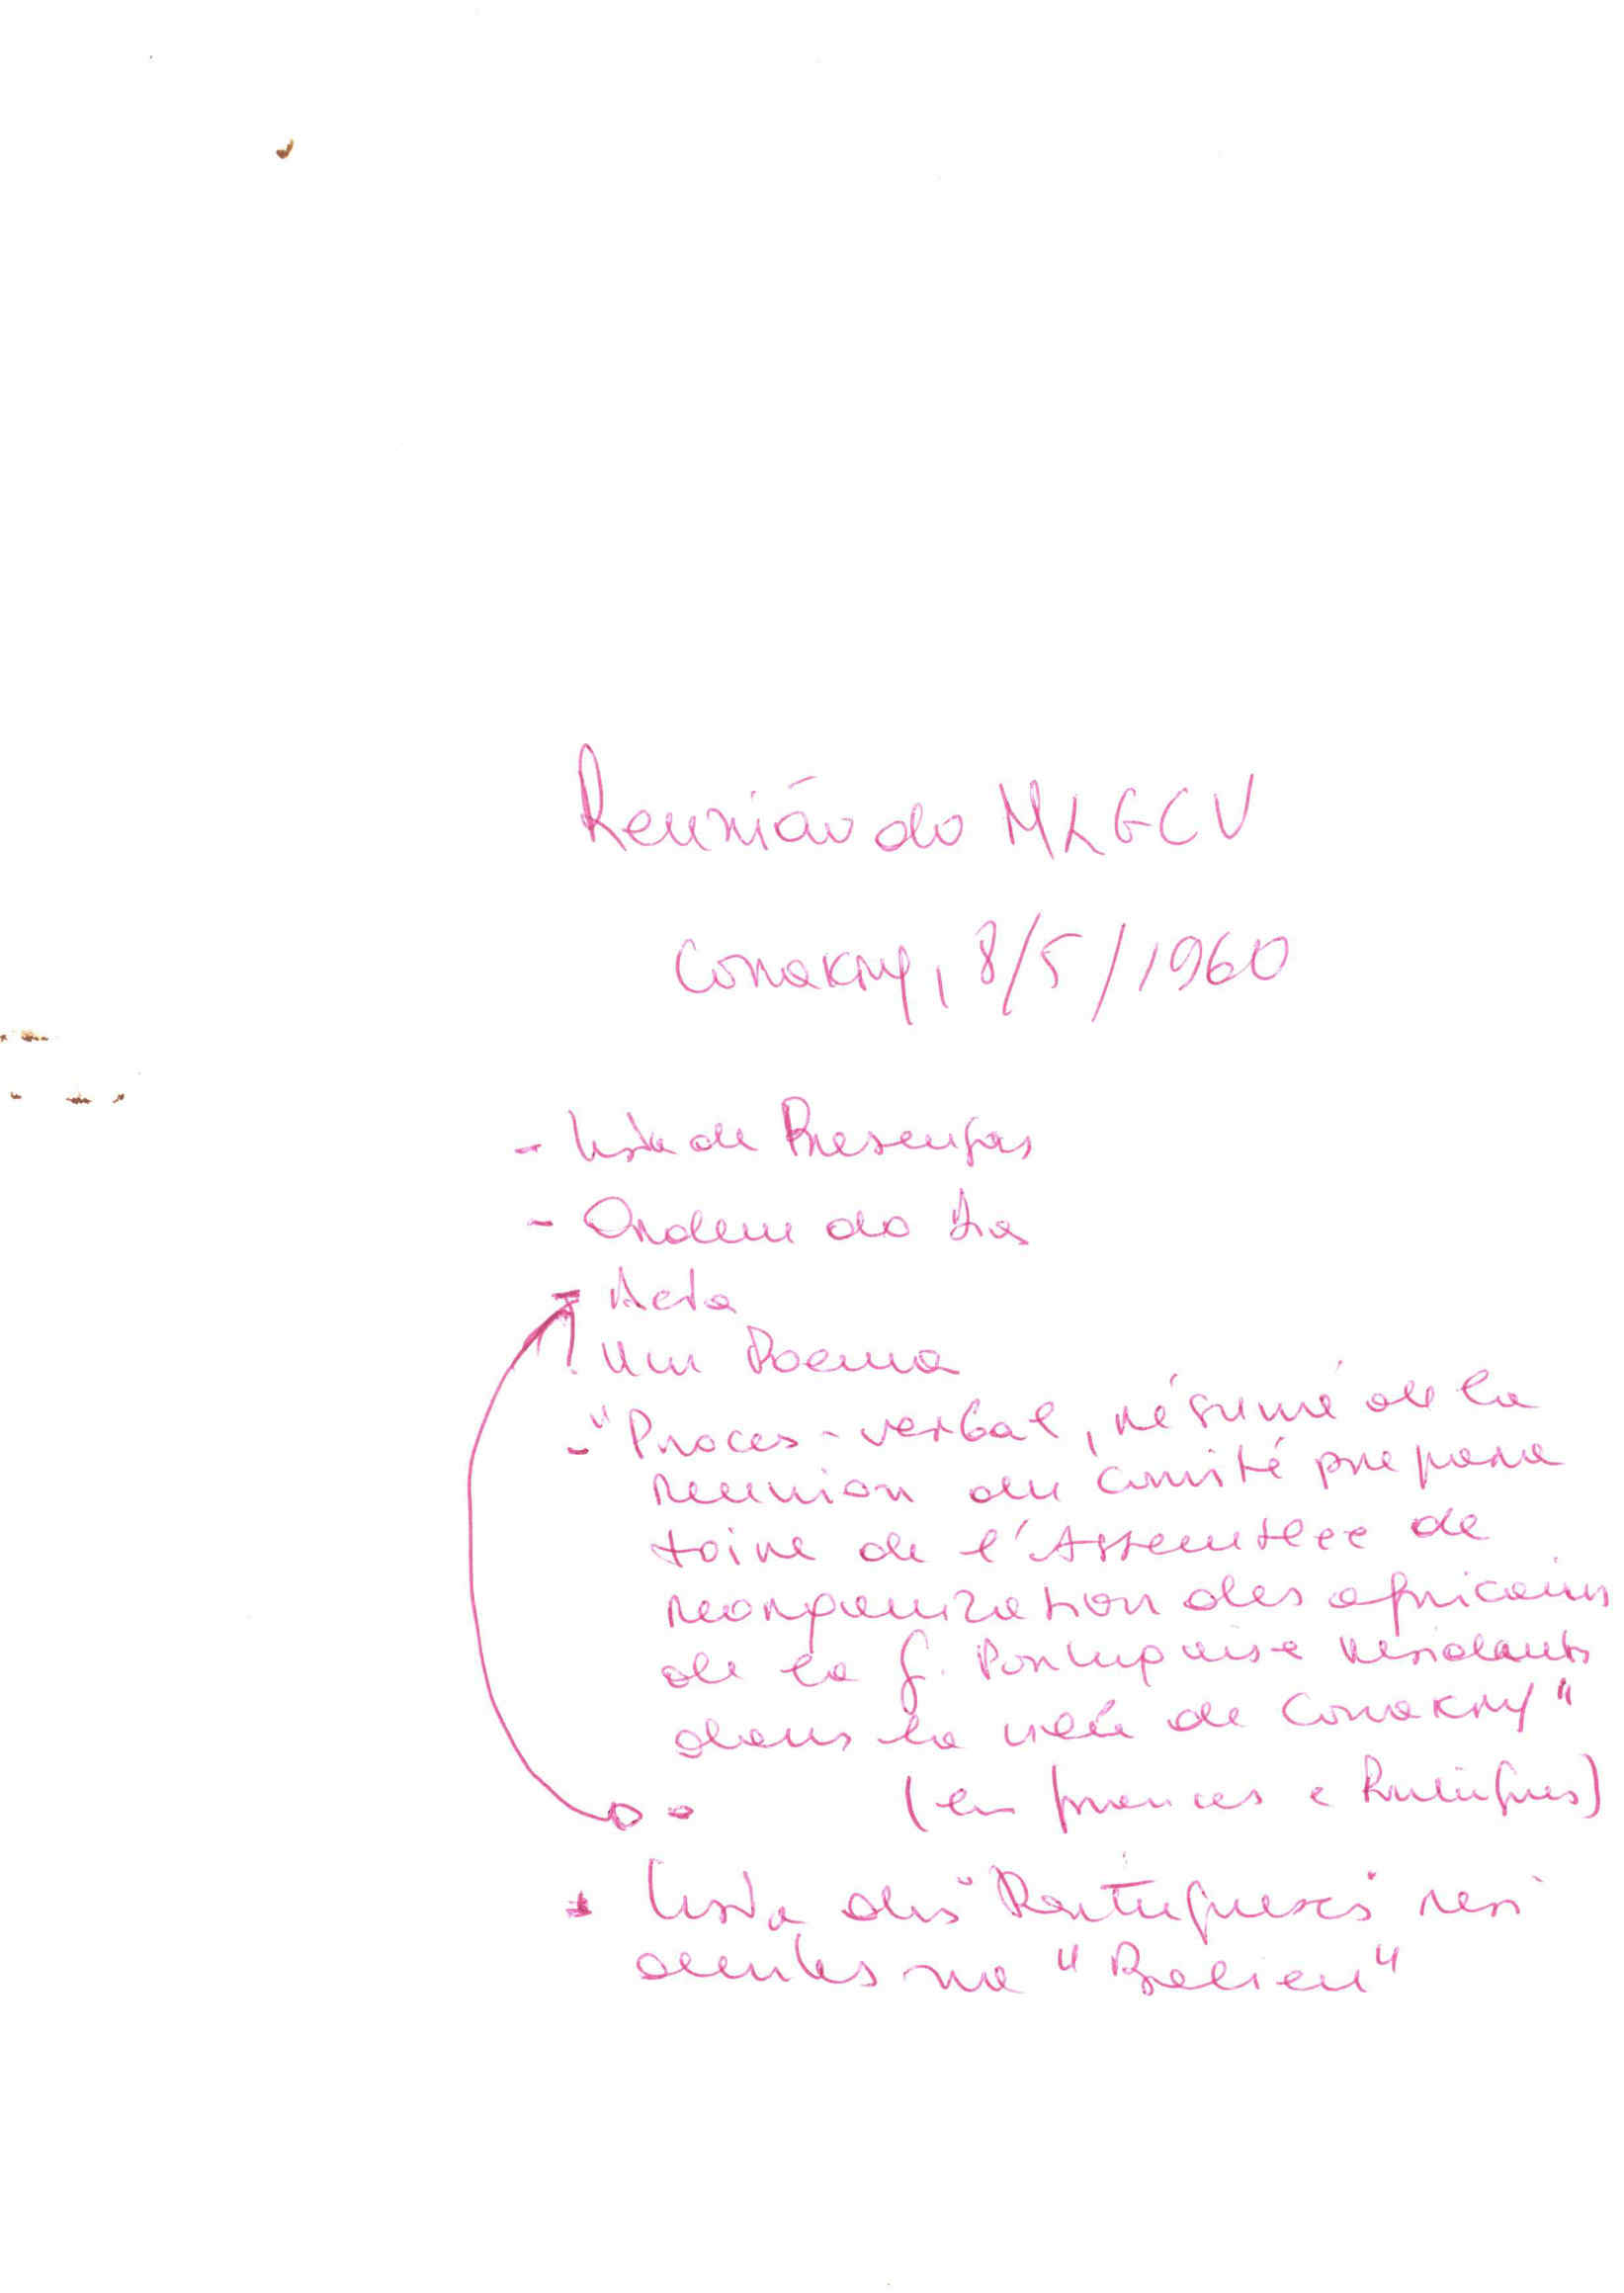 Reunião do MLGCV
Conakry, 8/5/1960
- Lista de Presenças
- Ordem do Dia
- Acta
! Um Poema
- "Proces-verbal, résumé de la
reunion du Comité prepara
toire de l'Assemblee de
reorganization des africains
de la G. Portugaise residants
dans la ville de Conakry"
(em frances e Português)
* Lista dos "Portugueses" resi
dentes na